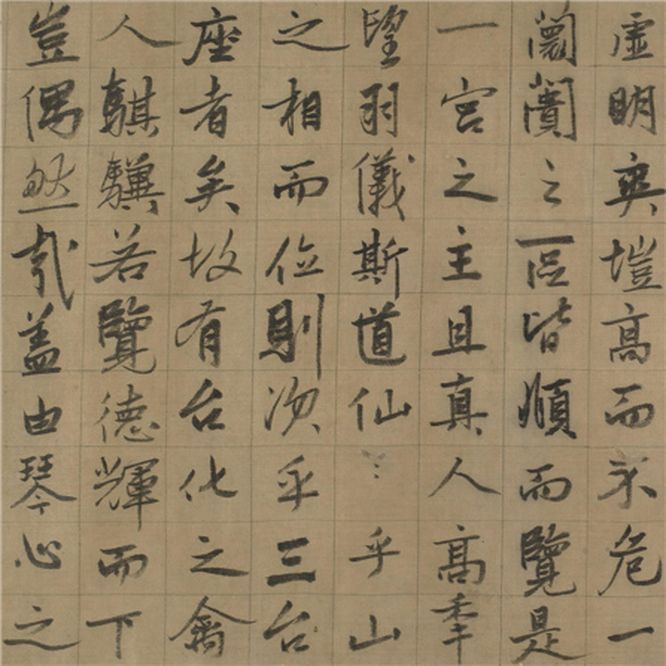 虛明爽塏高而不危一
闤闠之區皆頫而覽是
一宮之主且真人高秊
望羽儀斯道仙乎山
之相而位則次乎三台
座者矣故有台化之禽
人騏驥若覽德輝而下
豈偶然哉盖由琴心之